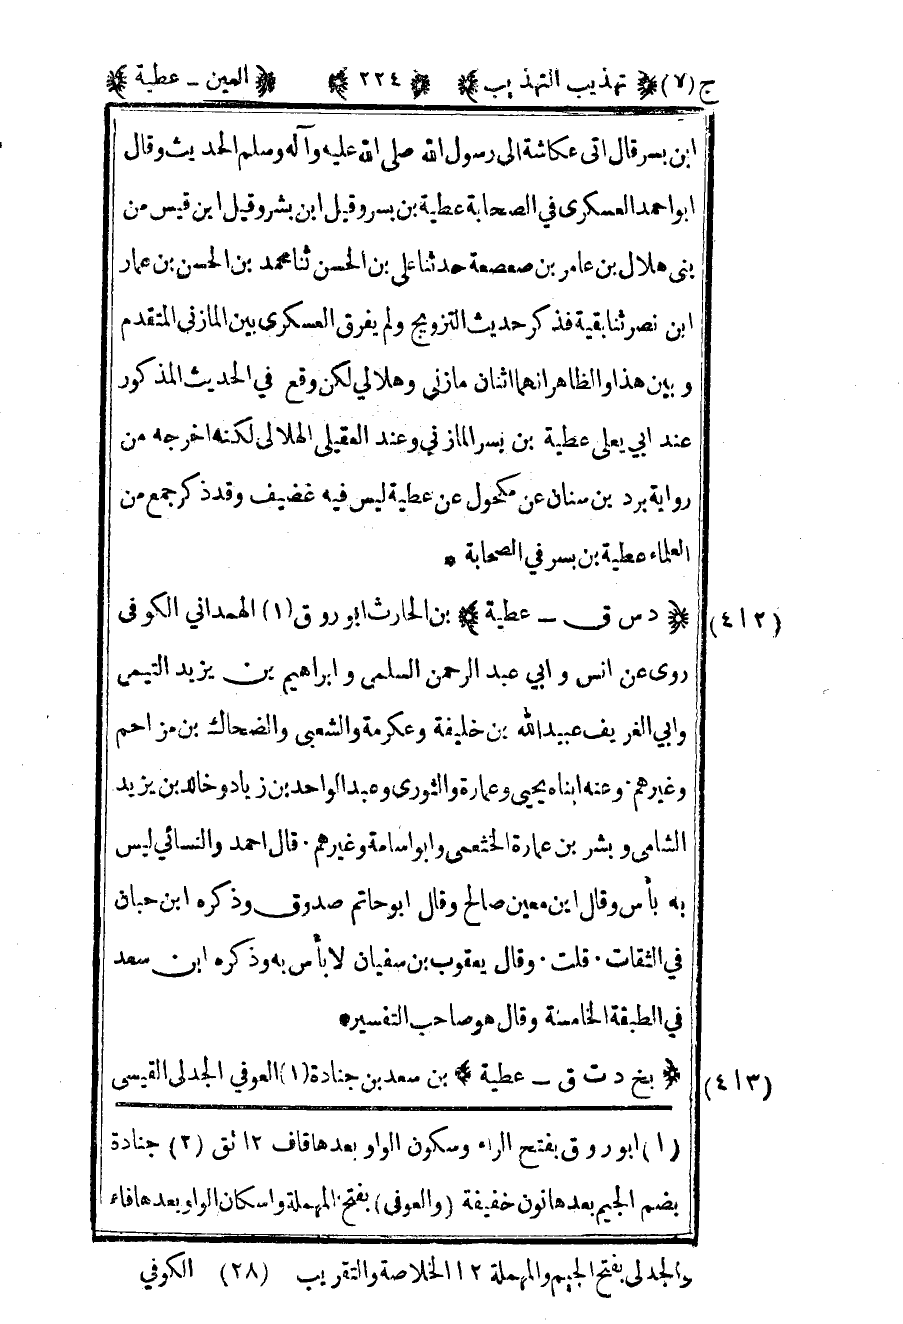 ج (٧) ﴿ تهذيب التهذيب ﴾ ﴿ ٢٢٤ ﴾ ﴿ العين ــ عطية ﴾
ابن بسر قال اتى عكاشة الى رسول الله صلى الله عليه وآله وسلم الحديث وقال
ابو احمد العسكرى في الصحابة عطية بن بسر وقيل ابن بشر وقيل ابن قيس من
بنى هلال بن عامر بن صعصعة حدثنا على بن الحسن ثنا محمد بن الحسن بن عمار
ابن نصر ثنا بقية فذكر حديث التزويج ولم يفرق العسكرى بين المازني المتقدم
و بين هذا والظاهر انهما اثنان مازني وهلالي لكن وقع في الحديث المذكور
عند ابي يعلى عطية بن بسر المازني وعند العقيلى الهلالى لكنه اخرجه من
رواية برد بن سنان عن مكحول عن عطية ليس فيه غضيف وقد ذكر جمع من
العلماء عطية بن بسر في الصحابة *
(٤١٢) ﴿ د س ق ــ عطية ﴾ بن الحارث ابو روق (١) الهمداني الكوفى
روى عن انس و ابي عبد الرحمن السلمى و ابراهيم بن يزيد التيمى
وابي الغريف عبيد الله بن خليفة وعكرمة والشعبى والضحاك بن مزاحم
وغيرهم · وعنه ابناه يحيى وعمارة والثورى وعبد الواحد بن زياد وخالد بن يزيد
الشامى و بشر بن عمارة الخثعمى وابو اسامة وغيرهم · قال احمد والنسائي ليس
به بأس وقال ابن معين صالح وقال ابو حاتم صدوق وذكره ابن حبان
في الثقات · قلت · وقال يعقوب بن سفيان لا بأس به وذكره ابن سعد
في الطبقة الخامسة وقال هو صاحب التفسير *
(٤١٣) ﴿ بخ د ت ق ــ عطية ﴾ بن سعد بن جنادة (١) العوفي الجدلى القيسى
(١) ابو روق بفتح الراء وسكون الواو بعدها قاف ١٢ تق (٢) جنادة
بضم الجيم بعدها نون خفيفة (والعوفى) بفتح المهملة واسكان الواو بعدها فاء
والجدلى بفتح الجيم والمهملة ١٢ الخلاصة والتقريب (٢٨) الكوفي